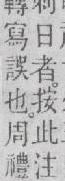 日者。按此注
寫誤也。周禮